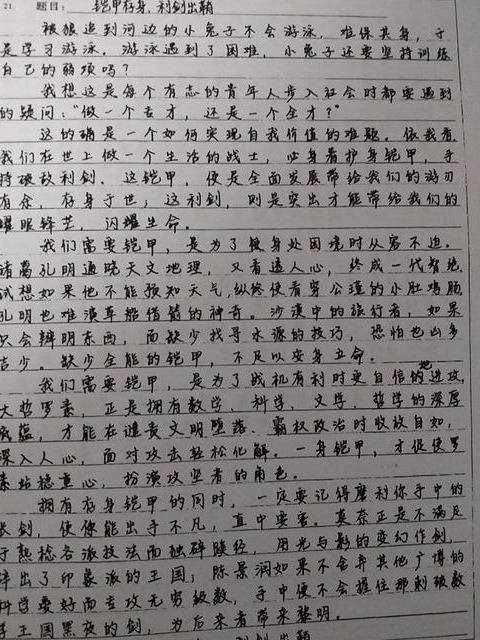 21. 题目: 铠甲存身,利剑出鞘
被狼追到河边的小兔子不会游泳,难保其身,于
是学习游泳。游泳遇到了困难,小兔子还要坚持训练
自己的弱项吗?
我想这是每个有志的青年人步入社会时都要遇到
的疑问:“做一个专才,还是一个全才?”
这的确是一个如何实现自我价值的难题。依我看,
我们在世上做一个生活的战士,必身着护身铠甲,手
持破敌利剑。这铠甲,便是全面发展带给我们的游刃
有余,存身于世;这利剑,则是突出才能带给我们的
耀眼锋芒,闪耀生命。
我们需要铠甲,是为了独身处困境时从容不迫。
诸葛孔明通晓天文地理,又看透人心,终成一代智地
试想如果他不能预知天气,纵然使看穿公瑾的小肚鸡肠
孔明也难演草船借箭的神奇。沙漠中的旅行者,如果
只会辨明东西,而缺少找寻水源的技巧,恐怕也凶多
吉少。缺少全能的铠甲,不足以安身立命。
我们需要铠甲,是为了战机有利时更自信地进攻。
大哲罗素,正是拥有数学、科学、文学、哲学的深厚
底蕴,才能在谴责文明堕落、霸权政治时收放自如,
深入人心,面对攻击轻松化解。一身铠甲,才促使罗
素站稳重心,扮演攻坚者的角色。
拥有存身铠甲的同时,一定要记得磨利你手中的
长剑,使你能出手不凡,直中要害。莫奈正是不满足
于熟稔各派技法而独辟蹊径,用光与影的变幻作剑,
辟出了印象派的王国;陈景润如果不会弃其他广博的
科学爱好而去攻无穷级数,手中便不会握住那刺破数
学王国黑夜的剑,为后来者带来黎明。
利剑出鞘